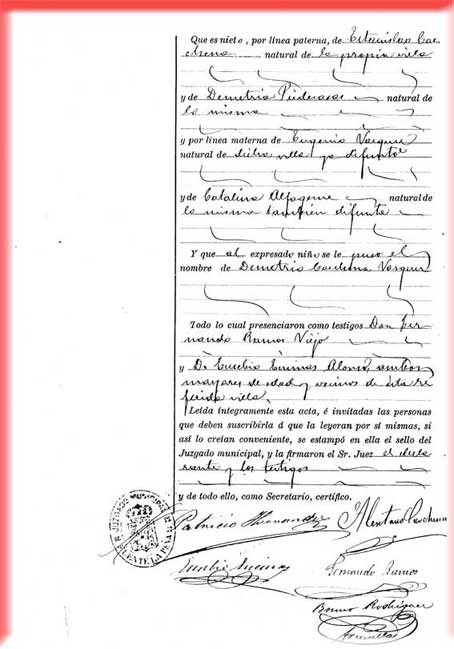 Que es nieto, por línea paterna, de Estanislao Cac
natural de la propia villa
y de Demetria natural de
la misma
y por línea materna de Eugenio Vazquez
natural de dicha villa ya difunto
y de Catalina Alfageme natural de
la misma también difunta
Y que al expresado niño se le puso el
nombre de Demetrio Vazquez
Todo lo cual presenciaron como testigos Don Fer-
nando Ramos Viejo
y D. Eusebio Alonso, ambos
mayores de edad y vecinos de esta re
ferida villa.
Leída íntegramente esta acta, é invitadas las personas
que deben suscribirla á que la leyeran por sí mismas, si
así lo creían conveniente, se estampó en ella el sello del
Juzgado municipal, y la firmaron el Sr. Juez el decla
rante y los testigos
y de todo ello, como Secretario, certifico.
Patricio Hernandez
Eusebio
Fernando Ramos
Bruno Rodriguez
JUZGADO MUNICIPAL